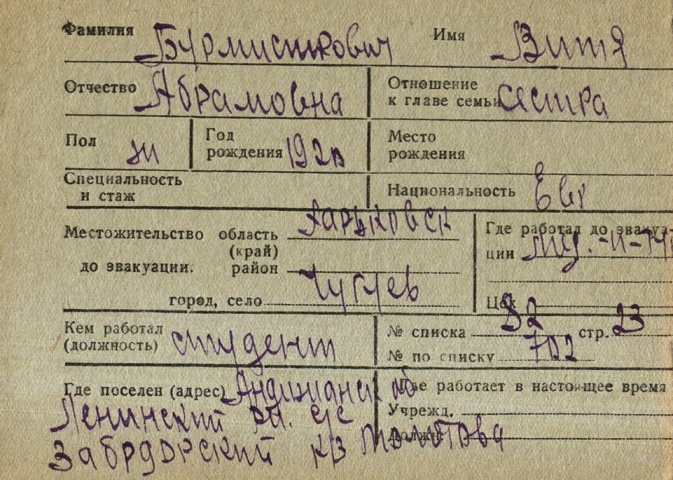 Фамилия Бурмистрович Имя Витя
Отчество Абрамовна Отношение к главе семьи сестра
Пол ж Год рождения 1920 Место рождения
Специальность и стаж Национальность Евр
Местожительство область Харьковск Где работал до эвакуа-
(край) ции -
до эвакуации. район
город, село Чугуев Цех
Кем работал (должность) студент № списка 82 стр. 23
№ по списку 702
Где поселен (адрес) Андижанск об Где работает в настоящее время
Ленинский рн. с/с Учрежд.
к/з Молотова